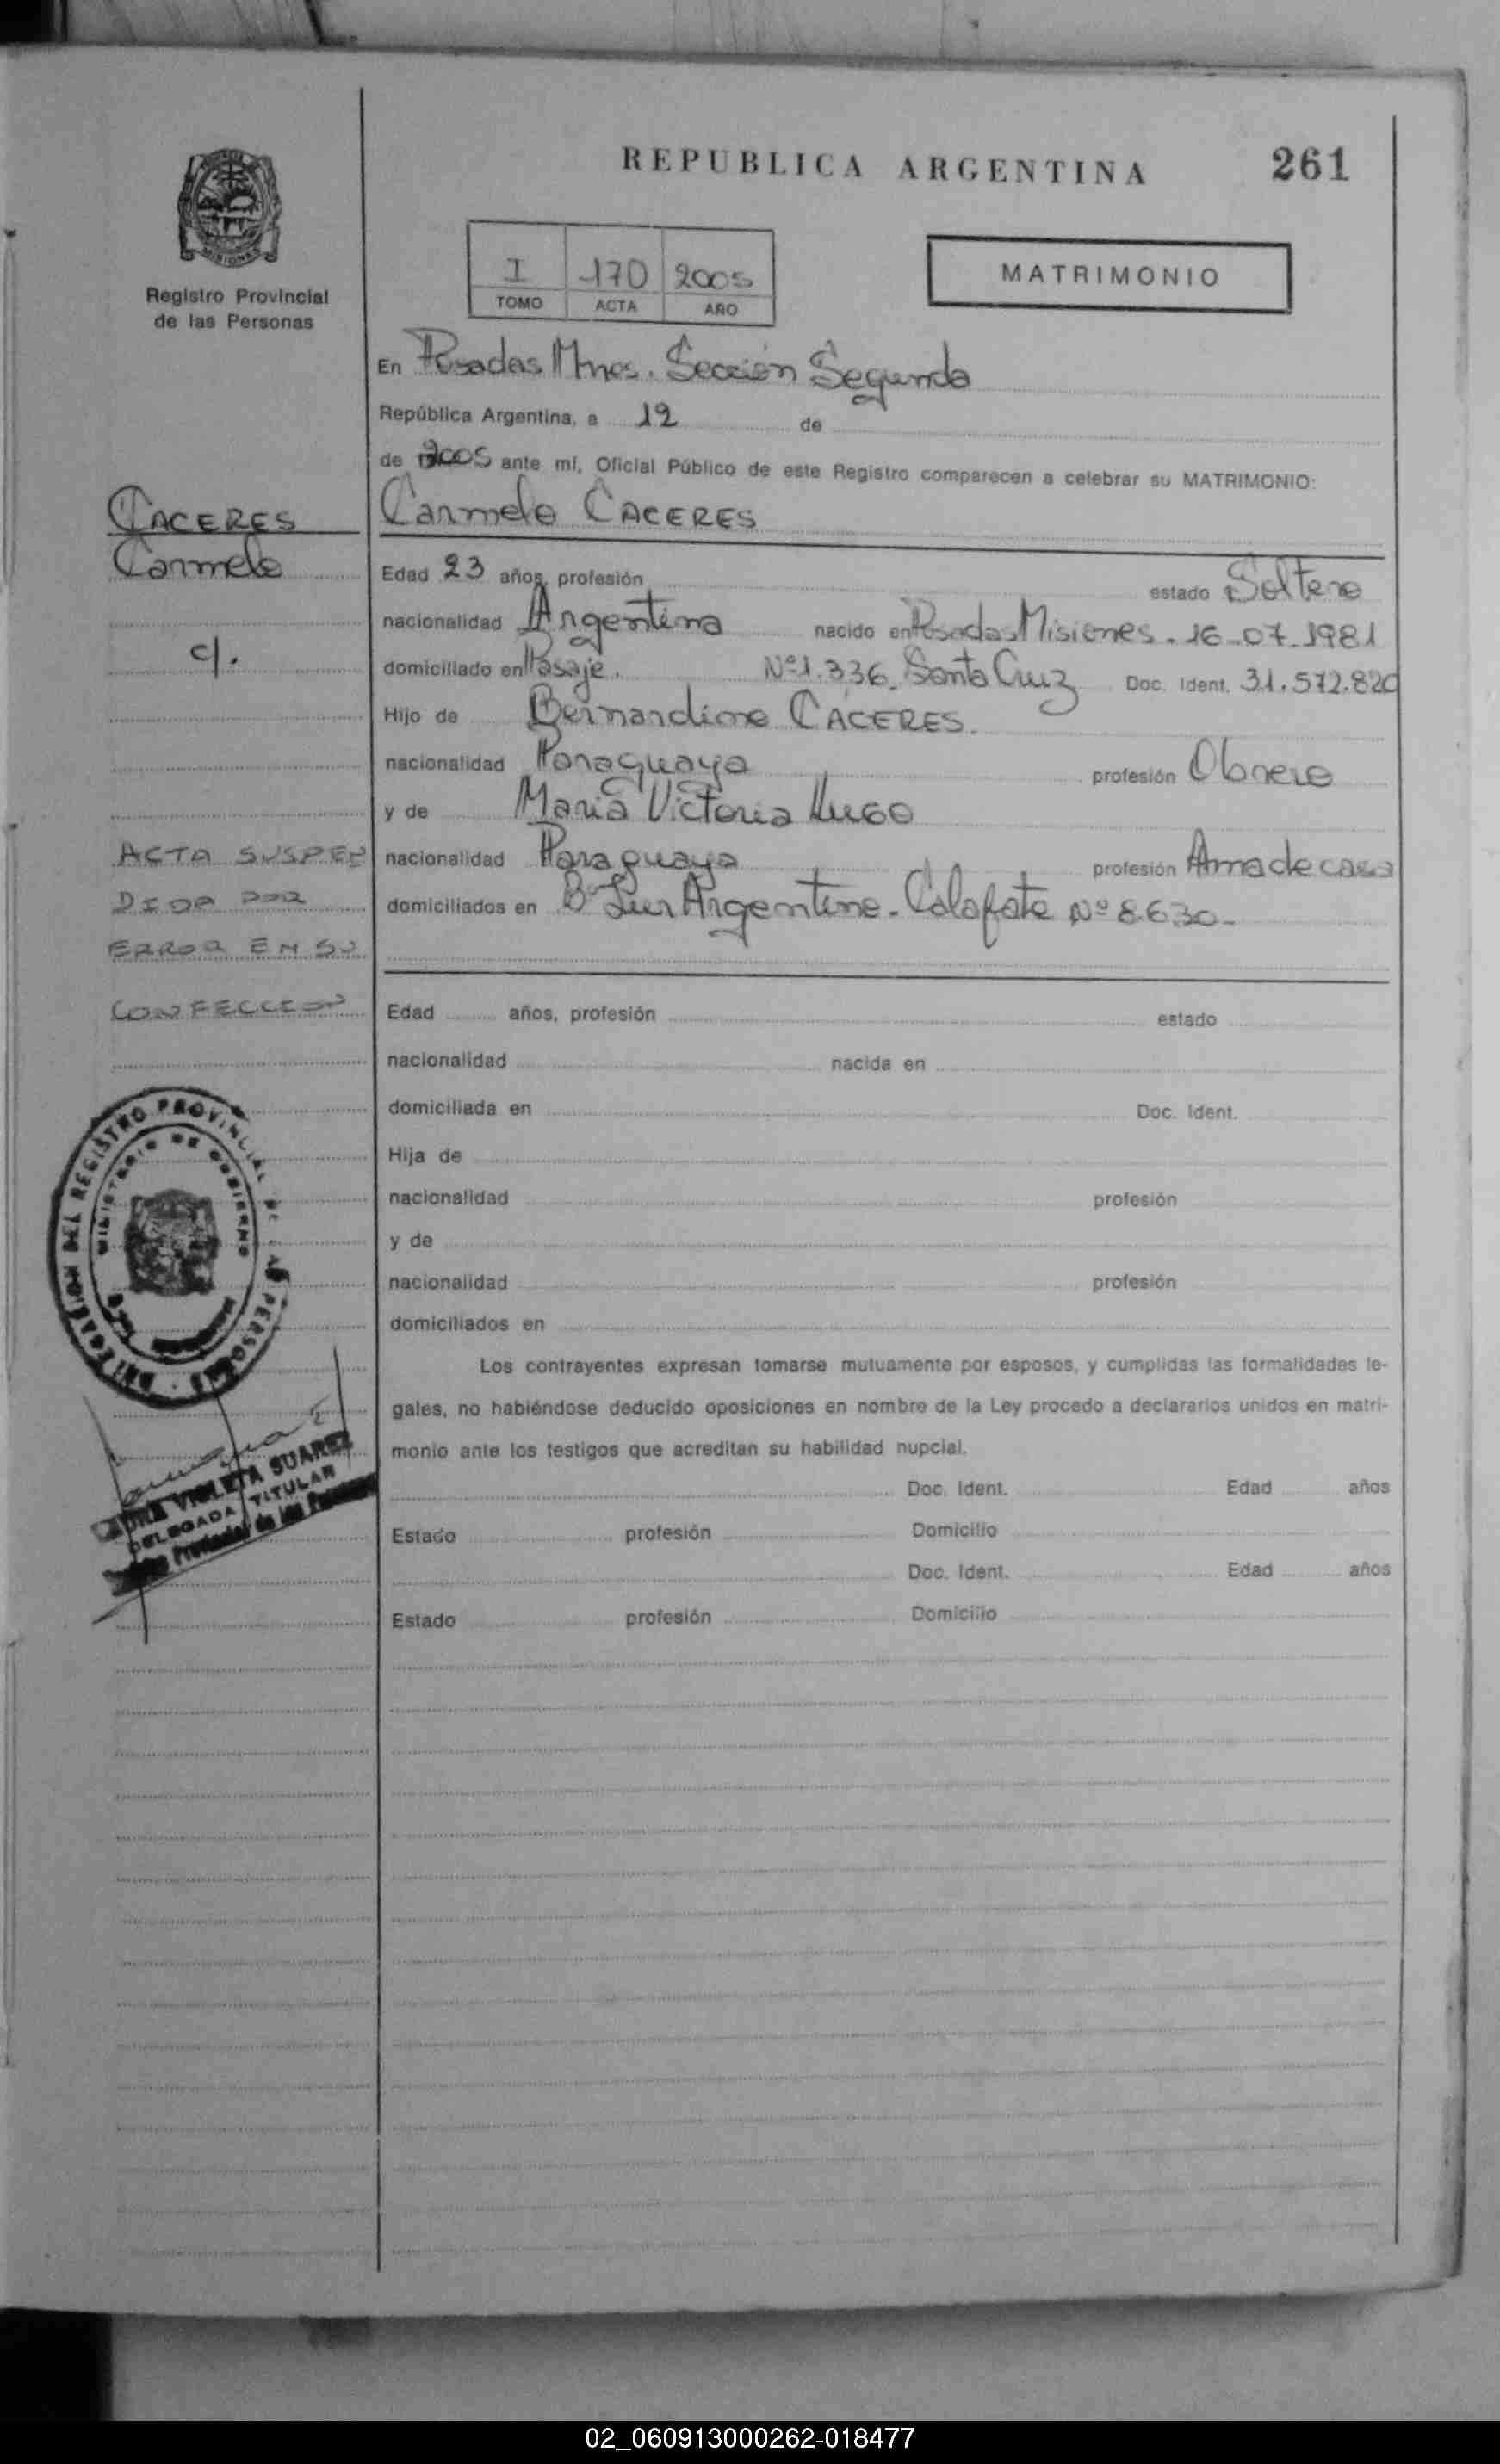 REPUBLICA ARGENTINA 261
MISIONES
Registro Provincial
de las Personas
I 170 2005
TOMO ACTA AÑO
MATRIMONIO
En Posadas Mnes. Sección Segunda
República Argentina, a 12 de
de 2005 ante mí, Oficial Público de este Registro comparecen a celebrar su MATRIMONIO:
CACERES
Carmelo
c/.
ACTA SUSPEN
DIDA POR
ERROR EN SU
CONFECCION
Carmelo CACERES
Edad 23 años, profesión estado Soltero
nacionalidad Argentina nacido en Posadas Misiones. 16-07-1981
domiciliado en Pasaje. Nº 1.336. Santa Cruz Doc. Ident. 31.572.820
Hijo de Bernardino CACERES.
nacionalidad Paraguaya profesión Obrero
y de María Victoria LUGO
nacionalidad Paraguaya profesión Ama de casa
domiciliados en Bº Sur Argentino. Calafate Nº 8630-
Edad años, profesión estado
nacionalidad nacida en
domiciliada en Doc. Ident.
Hija de
nacionalidad profesión
y de
nacionalidad profesión
domiciliados en
Los contrayentes expresan tomarse mutuamente por esposos, y cumplidas las formalidades le-
gales, no habiéndose deducido oposiciones en nombre de la Ley procedo a declararlos unidos en matri-
monio ante los testigos que acreditan su habilidad nupcial.
Doc. Ident. Edad años
Estado profesión Domicilio
Doc. Ident. Edad años
Estado profesión Domicilio
DEL REGISTRO PROVINCIAL DE LAS PERSONAS
MINISTERIO DE GOBIERNO
VIOLETA SUAREZ
DELEGADA TITULAR
Provincial de las Personas
02_060913000262-018477